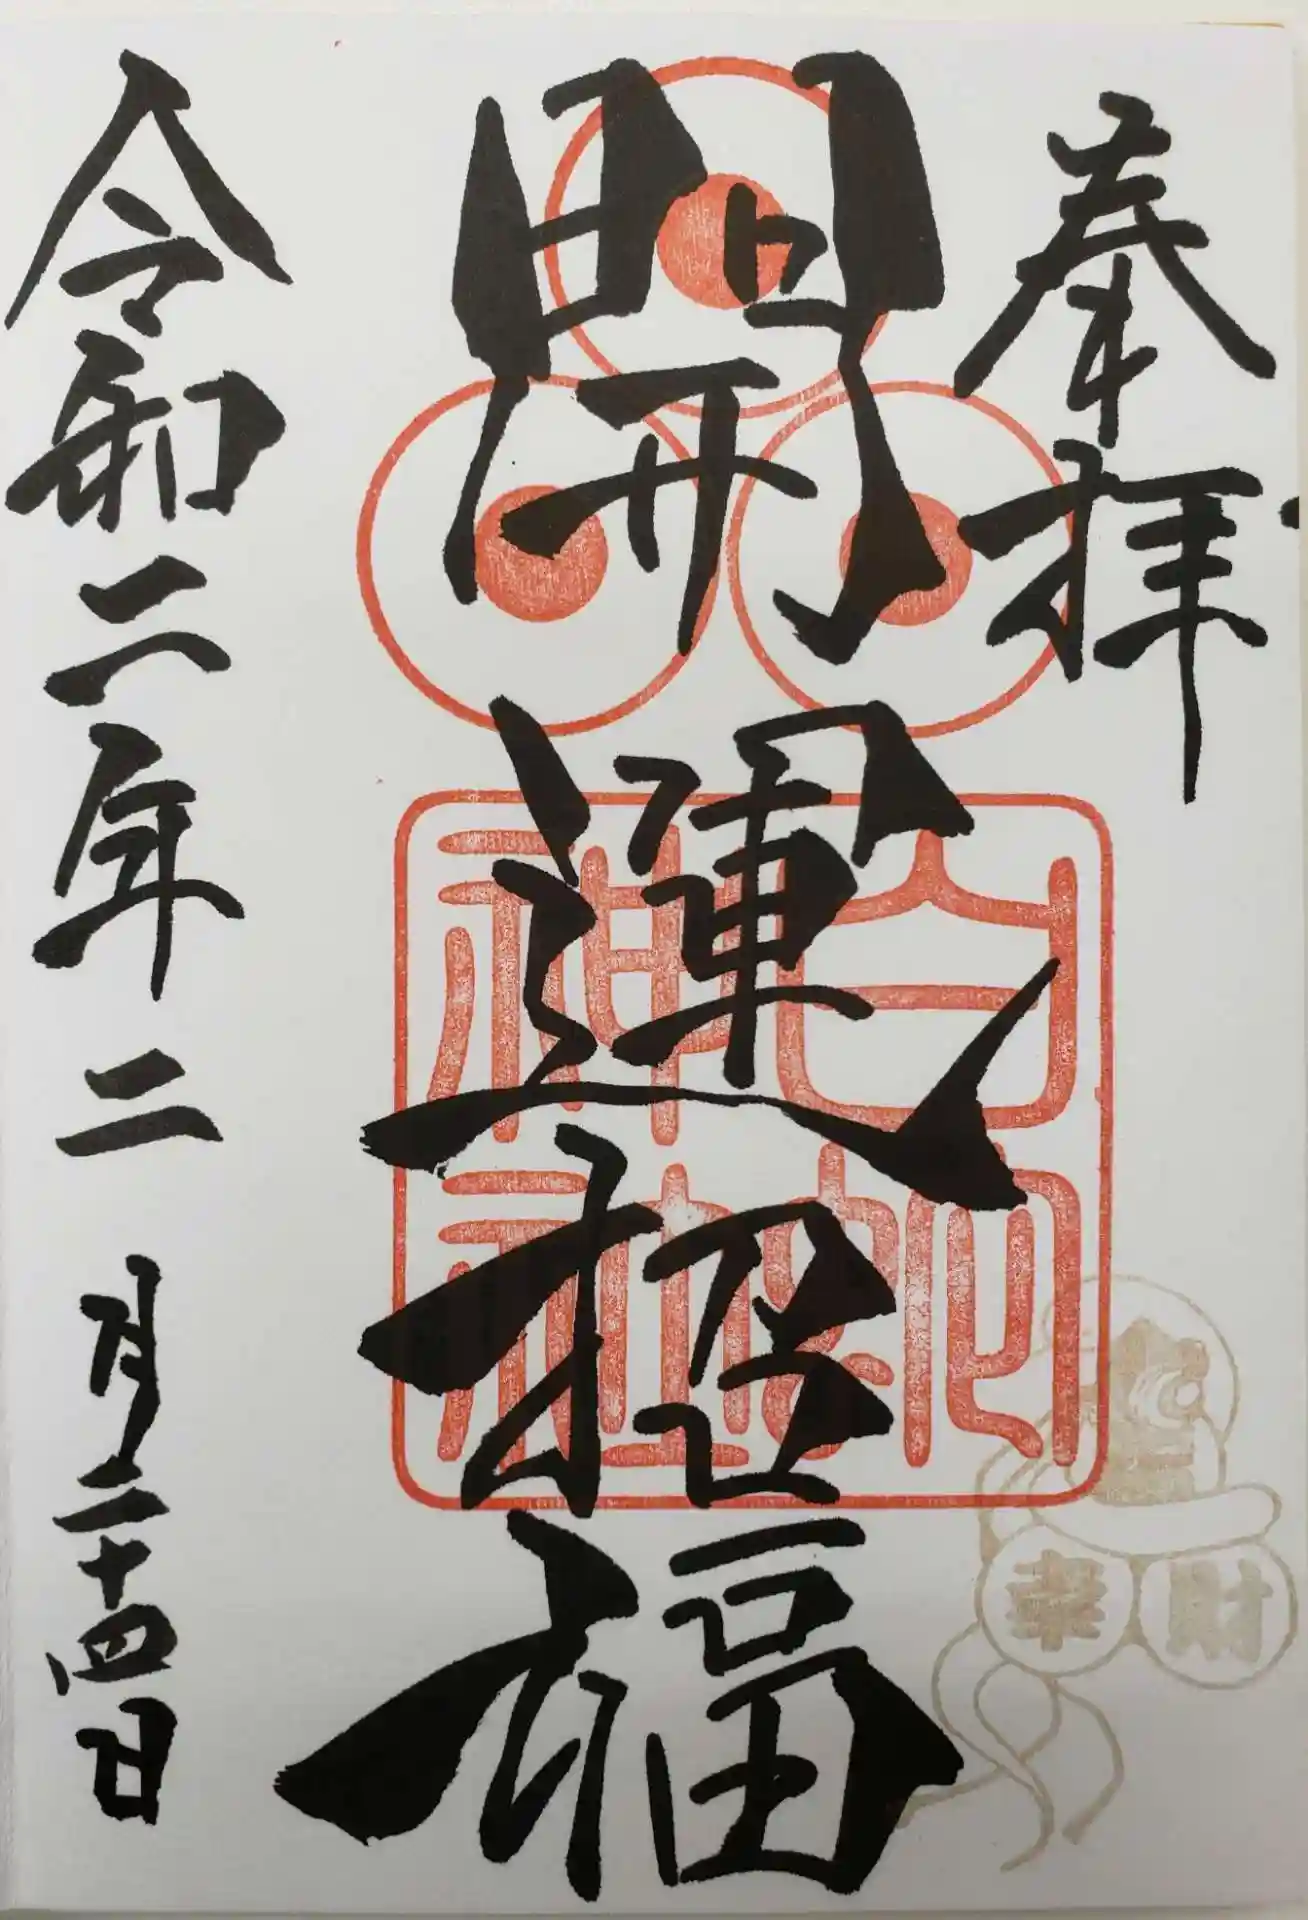 奉拝
開運招福
白蛇
神社
幸財
令和二年二月二十四日